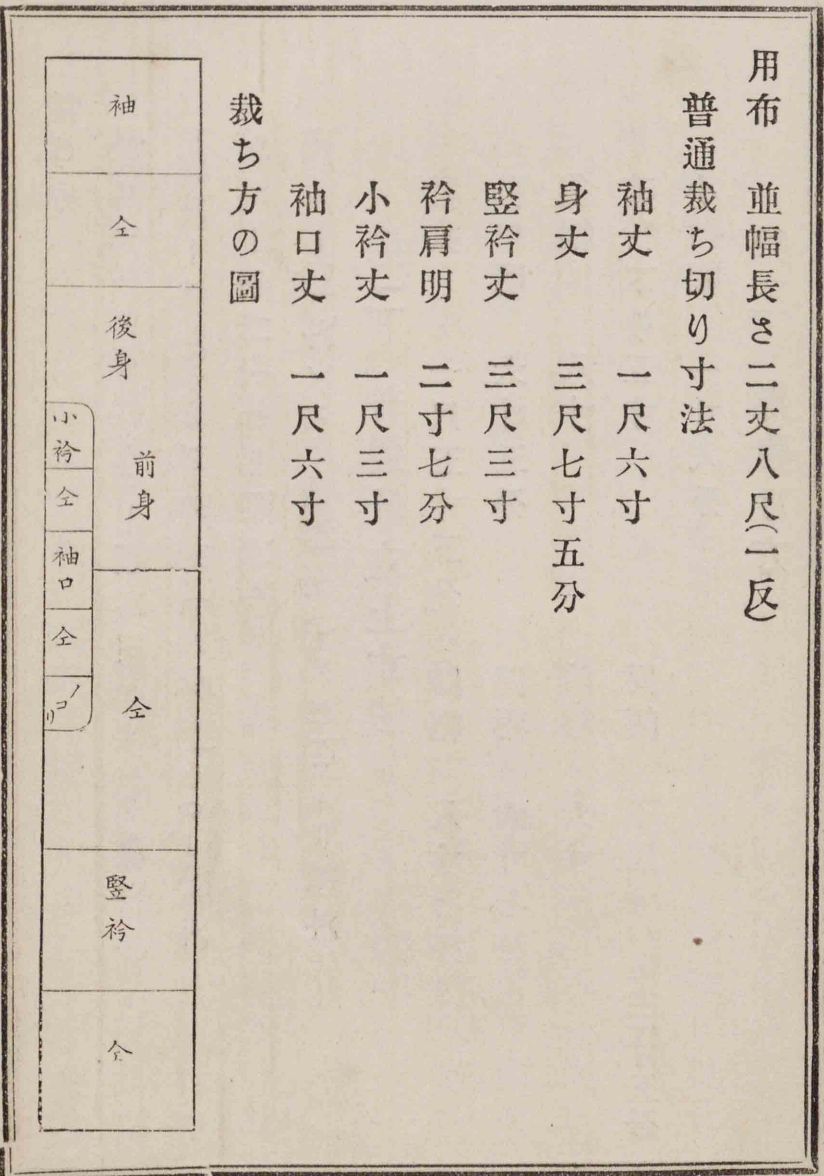 用布　並幅長さ二丈八尺(一反)
普通裁ち切り寸法
袖丈　一尺六寸
身丈　三尺七寸五分
竪衿丈　三尺三寸
衿肩明　二寸七分
小衿丈　一尺三寸
袖口丈　一尺六寸
裁ち方の圖
袖
仝
後身
前身
小衿
仝
袖口
仝
ノコリ
仝
竪衿
仝